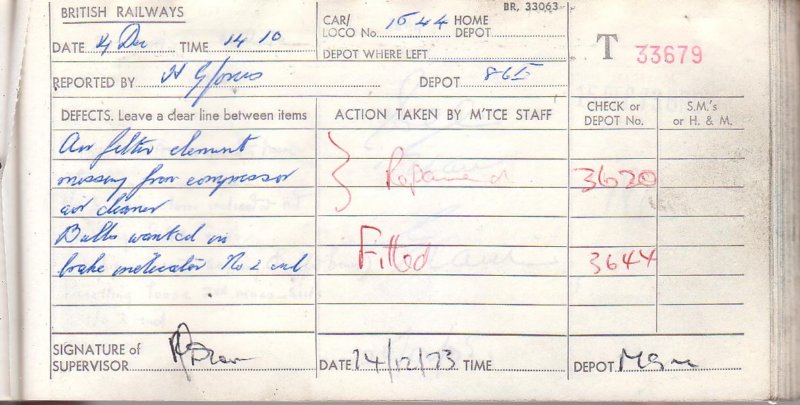 BRITISH RAILWAYS
BR. 33063
CAR/ LOCO No. 1644 HOME DEPOT
DATE 4 Dec TIME 14 10
DEPOT WHERE LEFT
T 33679
REPORTED BY H DEPOT 86E
DEFECTS. Leave a clear line between items
ACTION TAKEN BY M'TCE STAFF
CHECK or DEPOT No.
S.M.'s or H. & M.
Air filter element
missing from compressor
air cleaner
Repaired
3620
Bulbs wanted in
brake indicator No 2 end
Fitted
3644
SIGNATURE of SUPERVISOR
DATE 14/12/73 TIME
DEPOT